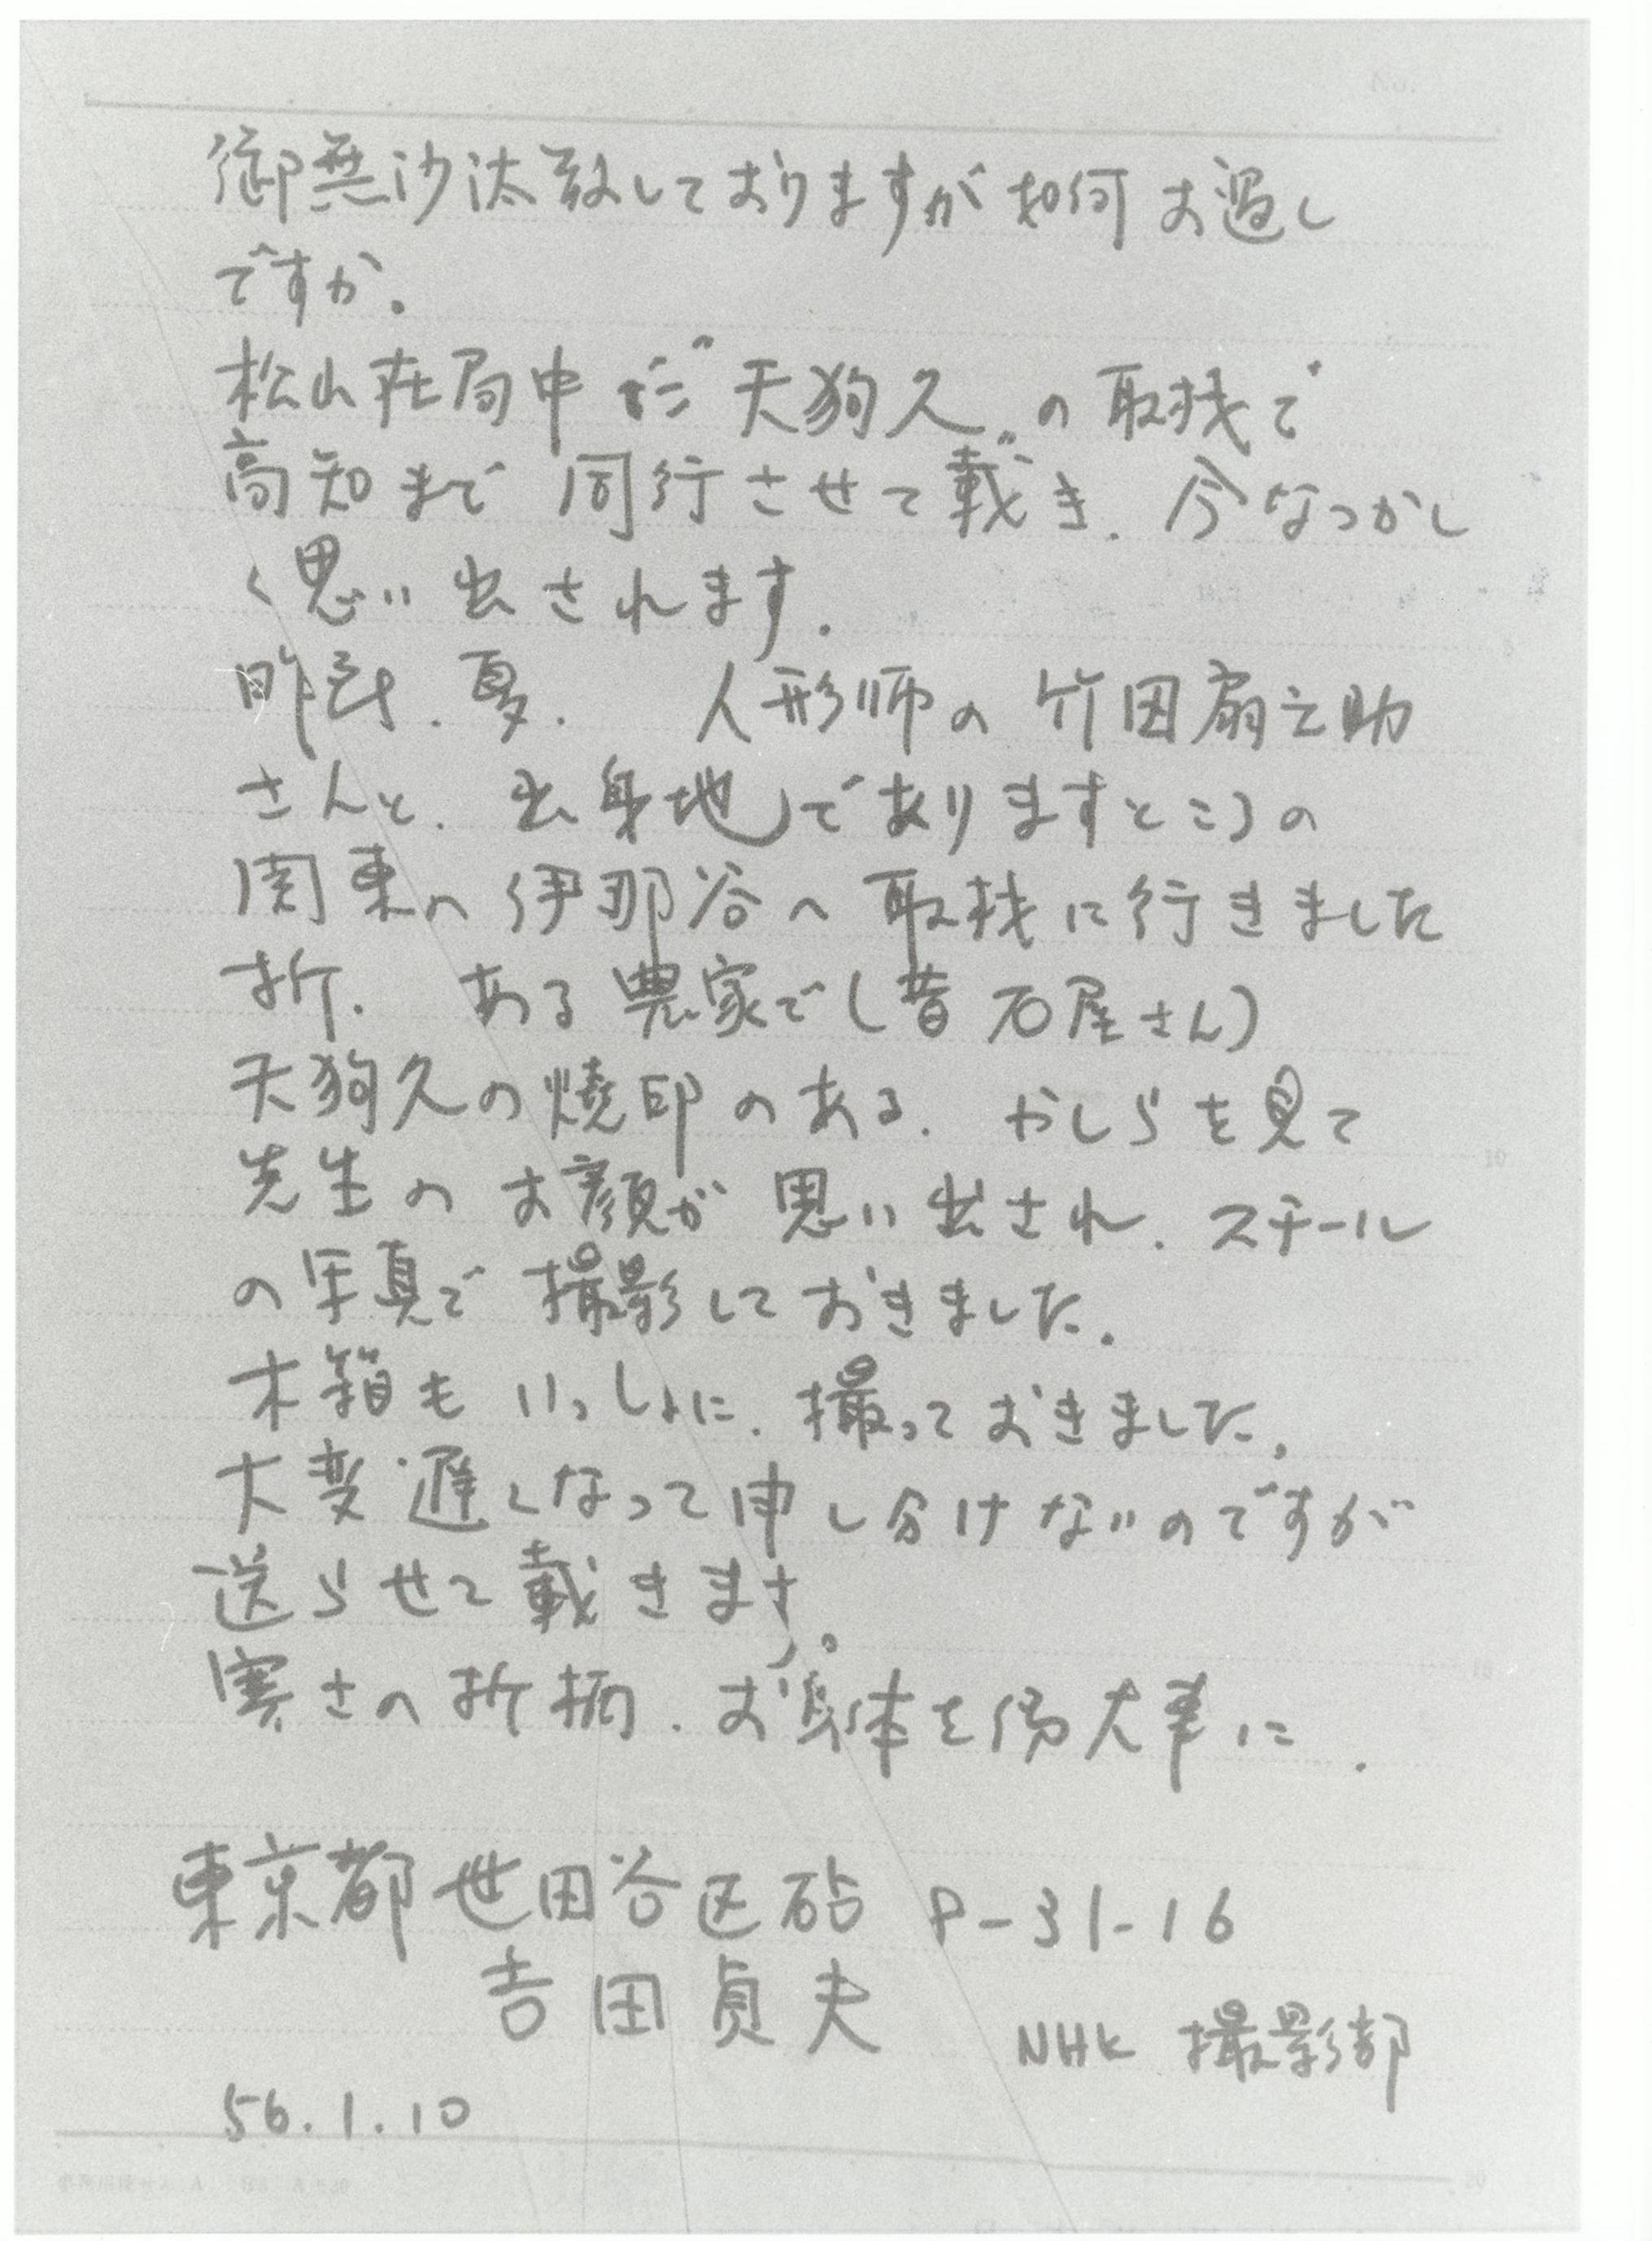 御無沙汰致しておりますが如何お過し
ですか.
松山在局中に〝天狗久〟の取材で
高知まで同行させて載き.今なつかし
く思い出されます.
昨年.夏.人形師の竹田扇之助
さんと.出身地でありますところの
関東の伊那谷へ取材に行きました
折.ある農家で(昔石屋さん)
天狗久の焼印のある.かしらを見て
先生のお顔が思い出され.スチール
の写真で撮影しておきました.
木箱もいっしょに.撮っておきました.
大変遅くなって申し分けないのですが
送らせて載きます。
寒さの折柄.お身体を御大事に.
東京都世田谷区砧 8-31-16
吉田貞夫
NHK 撮影部
56.1.10